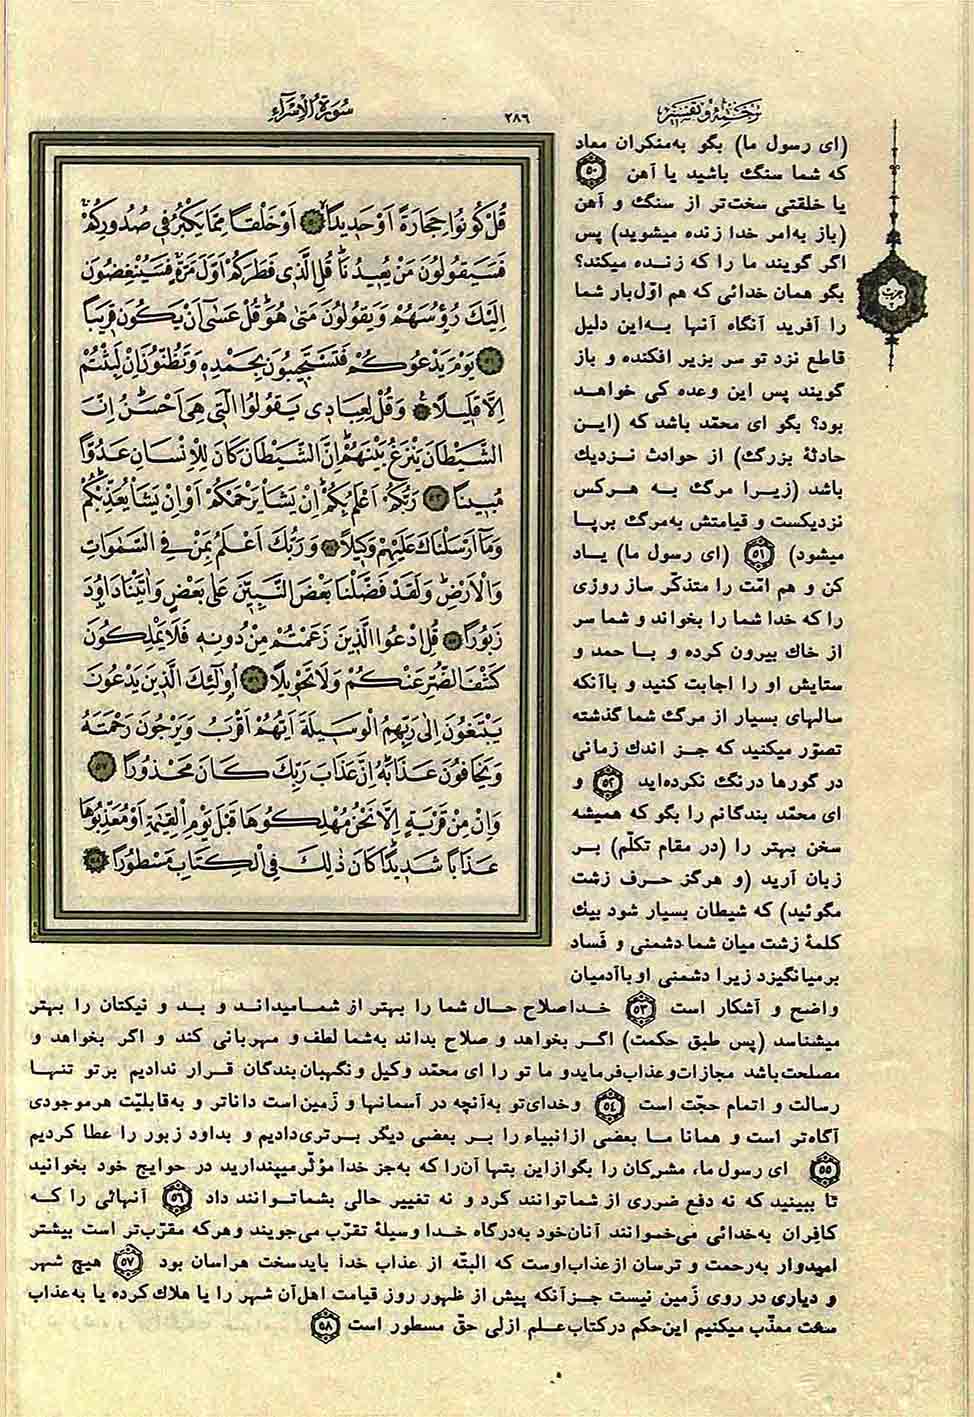 سُورَةُ الْاِسْرَآءِ
٢٨٦
ترجمه و تفسير
قُلْ كُونُوا حِجَارَةً اَوْ حَدِيدًا ٥٠ اَوْ خَلْقًا مِمَّا يَكْبُرُ فِي صُدُورِكُمْ
فَسَيَقُولُونَ مَنْ يُعِيدُنَا قُلِ الَّذِي فَطَرَكُمْ اَوَّلَ مَرَّةٍ فَسَيُنْغِضُونَ
اِلَيْكَ رُؤُسَهُمْ وَيَقُولُونَ مَتٰى هُوَ قُلْ عَسٰٓى اَنْ يَكُونَ قَرِيبًا
٥١ يَوْمَ يَدْعُوكُمْ فَتَسْتَجِيبُونَ بِحَمْدِهِ وَتَظُنُّونَ اِنْ لَبِثْتُمْ
اِلَّا قَلِيلًا ٥٢ وَقُلْ لِعِبَادِي يَقُولُوا الَّتِي هِيَ اَحْسَنُ اِنَّ
الشَّيْطَانَ يَنْزَغُ بَيْنَهُمْ اِنَّ الشَّيْطَانَ كَانَ لِلْاِنْسَانِ عَدُوًّا
مُبِينًا ٥٣ رَبُّكُمْ اَعْلَمُ بِكُمْ اِنْ يَشَأْ يَرْحَمْكُمْ اَوْ اِنْ يَشَأْ يُعَذِّبْكُمْ
وَمَآ اَرْسَلْنَاكَ عَلَيْهِمْ وَكِيلًا ٥٤ وَرَبُّكَ اَعْلَمُ بِمَنْ فِي السَّمٰوَاتِ
وَالْاَرْضِ وَلَقَدْ فَضَّلْنَا بَعْضَ النَّبِيِّنَ عَلٰى بَعْضٍ وَاٰتَيْنَا دَاوُدَ
زَبُورًا ٥٥ قُلِ ادْعُوا الَّذِينَ زَعَمْتُمْ مِنْ دُونِهِ فَلَا يَمْلِكُونَ
كَشْفَ الضُّرِّ عَنْكُمْ وَلَا تَحْوِيلًا ٥٦ اُولٰٓئِكَ الَّذِينَ يَدْعُونَ
يَبْتَغُونَ اِلٰى رَبِّهِمُ الْوَسِيلَةَ اَيُّهُمْ اَقْرَبُ وَيَرْجُونَ رَحْمَتَهُ
وَيَخَافُونَ عَذَابَهُ اِنَّ عَذَابَ رَبِّكَ كَانَ مَحْذُورًا ٥٧
وَاِنْ مِنْ قَرْيَةٍ اِلَّا نَحْنُ مُهْلِكُوهَا قَبْلَ يَوْمِ الْقِيٰمَةِ اَوْ مُعَذِّبُوهَا
عَذَابًا شَدِيدًا كَانَ ذٰلِكَ فِي الْكِتَابِ مَسْطُورًا ٥٨
(ای رسول ما) بگو به‌منکران معاد
که شما سنگ باشید یا آهن ٥٠
یا خلقتی سخت‌تر از سنگ و آهن
(باز به‌امر خدا زنده میشوید) پس
اگر گویند ما را که زنده میکند؟
بگو همان خدائی که هم اوّل‌بار شما
را آفرید آنگاه آنها به‌این دلیل
قاطع نزد تو سر بزیر افکنده و باز
گویند پس این وعده کی خواهد
بود؟ بگو ای محمّد باشد که (این
حادثهٔ بزرگ) از حوادث نزدیک
باشد (زیرا مرگ به هرکس
نزدیکست و قیامتش به‌مرگ برپا
میشود) ٥١ (ای رسول ما) یاد
کن و هم امّت را متذکّر ساز روزی
را که خدا شما را بخواند و شما سر
از خاک بیرون کرده و با حمد و
ستایش او را اجابت کنید و باآنکه
سالهای بسیار از مرگ شما گذشته
تصوّر میکنید که جز اندک زمانی
در گورها درنگ نکرده‌اید ٥٢ و
ای محمّد بندگانم را بگو که همیشه
سخن بهتر را (در مقام تکلّم) بر
زبان آرید (و هرگز حرف زشت
مگوئید) که شیطان بسیار شود بیک
کلمهٔ زشت میان شما دشمنی و فَساد
برمیانگیزد زیرا دشمنی او باآدمیان
واضح و آشکار است ٥٣ خداصلاح حال شما را بهتر از شمامیداند و بد و نیکتان را بهتر
میشناسد (پس طبق حکمت) اگر بخواهد و صلاح بداند به‌شما لطف و مهربانی کند و اگر بخواهد و
مصلحت‌باشد مجازات‌وعذاب‌فرماید و ما تو را ای محمّد وکیل و نگهبان‌بندگان قرار ندادیم برتو تنها
رسالت و اتمام حجّت است ٥٤ وخدای‌تو به‌آنچه در آسمانها و زَمین‌است داناتر و به‌قابلیّت هرموجودی
آگاه‌تر است و همانا ما بعضی ازانبیاء را بر بعضی دیگر برتری‌دادیم و بداود زبور را عطا کردیم
٥٥ ای رسول ما، مشرکان را بگوازاین بتها آن‌را که به‌جز خدا مؤثّر میپندارید در حوایج خود بخوانید
تا ببینید که نه دفع ضرری از شماتوانند کرد و نه تغییر حالی بشماتوانند داد ٥٦ آنهائی را که
کافِران به‌خدائی می‌خوانند آنان‌خود به‌درگاه خدا وسیلهٔ تقرّب می‌جویند وهرکه مقرّب‌تر است بیشتر
امیدوار به‌رحمت و ترسان ازعذاب‌اوست که البتّه از عذاب خدا بایدسخت هراسان بود ٥٧ هیچ شهر
و دیاری در روی زَمین نیست جزآنکه پیش از ظهور روز قیامت اهل‌آن شهر را یا هلاک کرده یا به‌عذاب
سخت معذّب میکنیم این‌حکم درکتاب‌علم ازلی حقّ مسطور است ٥٨